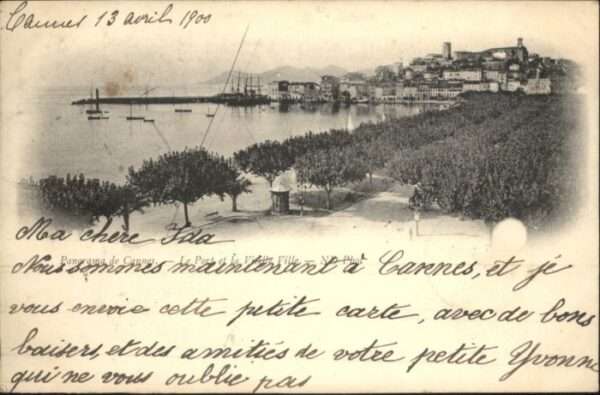 Cannes 13 avril 1900
Ma chère Ida
Panorama de Cannes. — Le Port et la Vieille Ville. — ND Phot
Nous sommes maintenant à Cannes, et je
vous envoie cette petite carte, avec de bons
baisers, et des amitiés de votre petite Yvonne
qui ne vous oublie pas